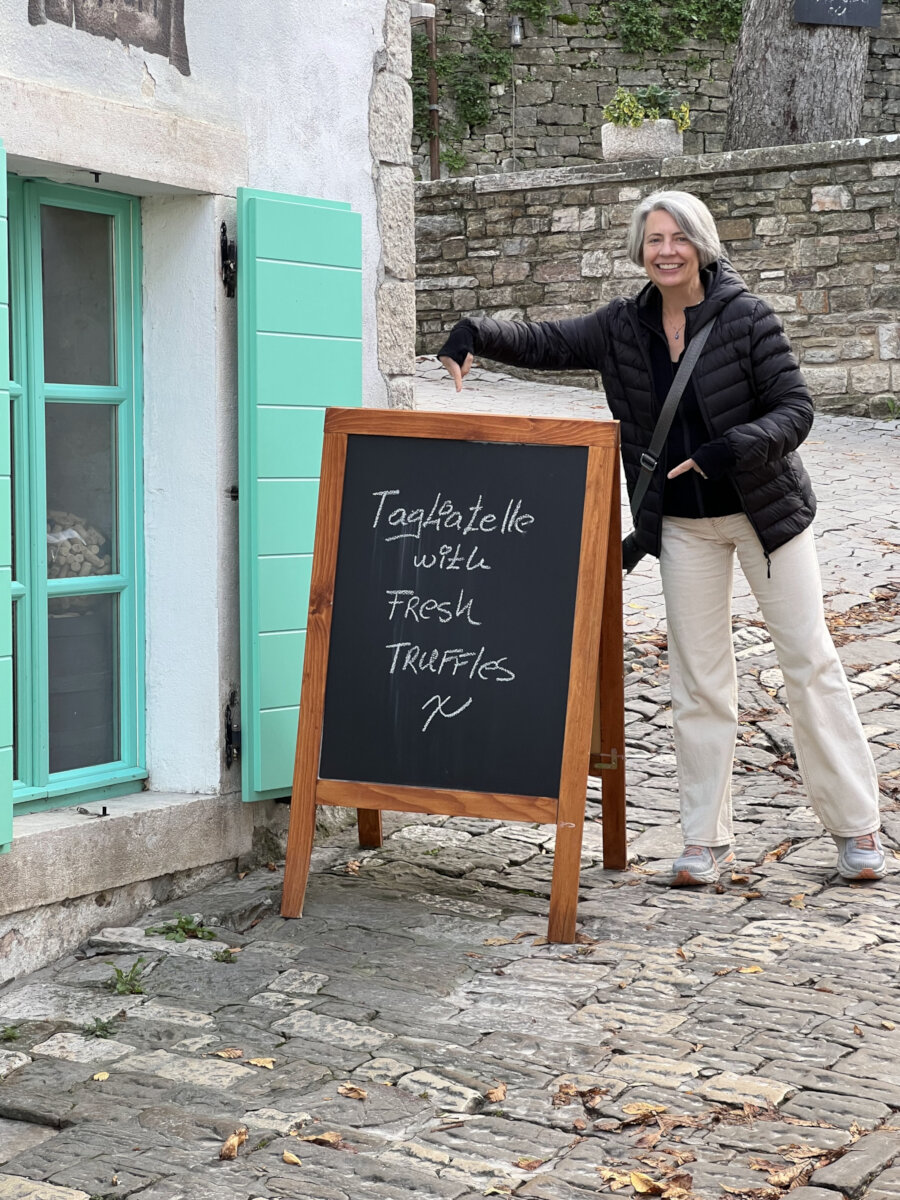 Tagliatelle
with
FResh
TRUFFles